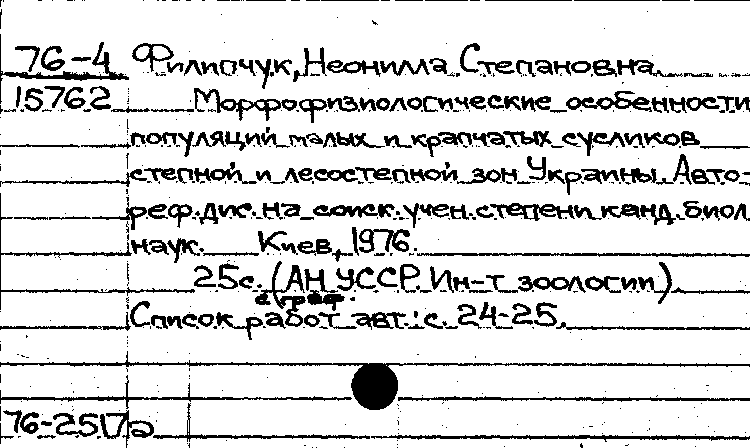 76-4 Филипчук, Неонилла Степановна.
15762 Морфофизиологические особенности
популяций малых и крапчатых сусликов
степной и лесостепной зон Украины. Авто-
реф. дис. на соиск. учен. степени канд. биол.
наук. Киев, 1976.
25с. (АН УССР. Ин-т зоологии).
Список работ авт.: с. 24-25.
76-2517а